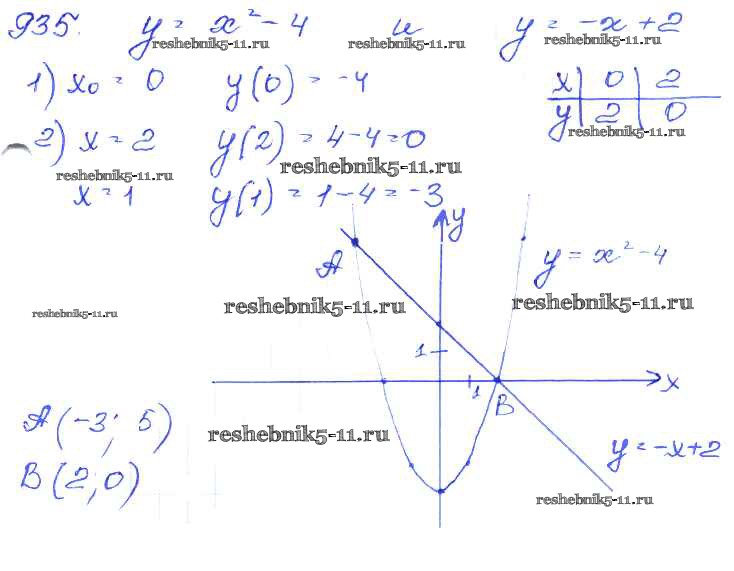 935. y = x² - 4 и y = -x + 2
reshebnik5-11.ru reshebnik5-11.ru reshebnik5-11.ru
1) x₀ = 0 y(0) = -4 x | 0 | 2
y | 2 | 0
reshebnik5-11.ru
2) x = 2 y(2) = 4 - 4 = 0
reshebnik5-11.ru reshebnik5-11.ru
x = 1 y(1) = 1 - 4 = -3
y
A y = x² - 4
reshebnik5-11.ru reshebnik5-11.ru
reshebnik5-11.ru
1
1 B x
A(-3; 5)
reshebnik5-11.ru
y = -x + 2
B(2; 0)
reshebnik5-11.ru